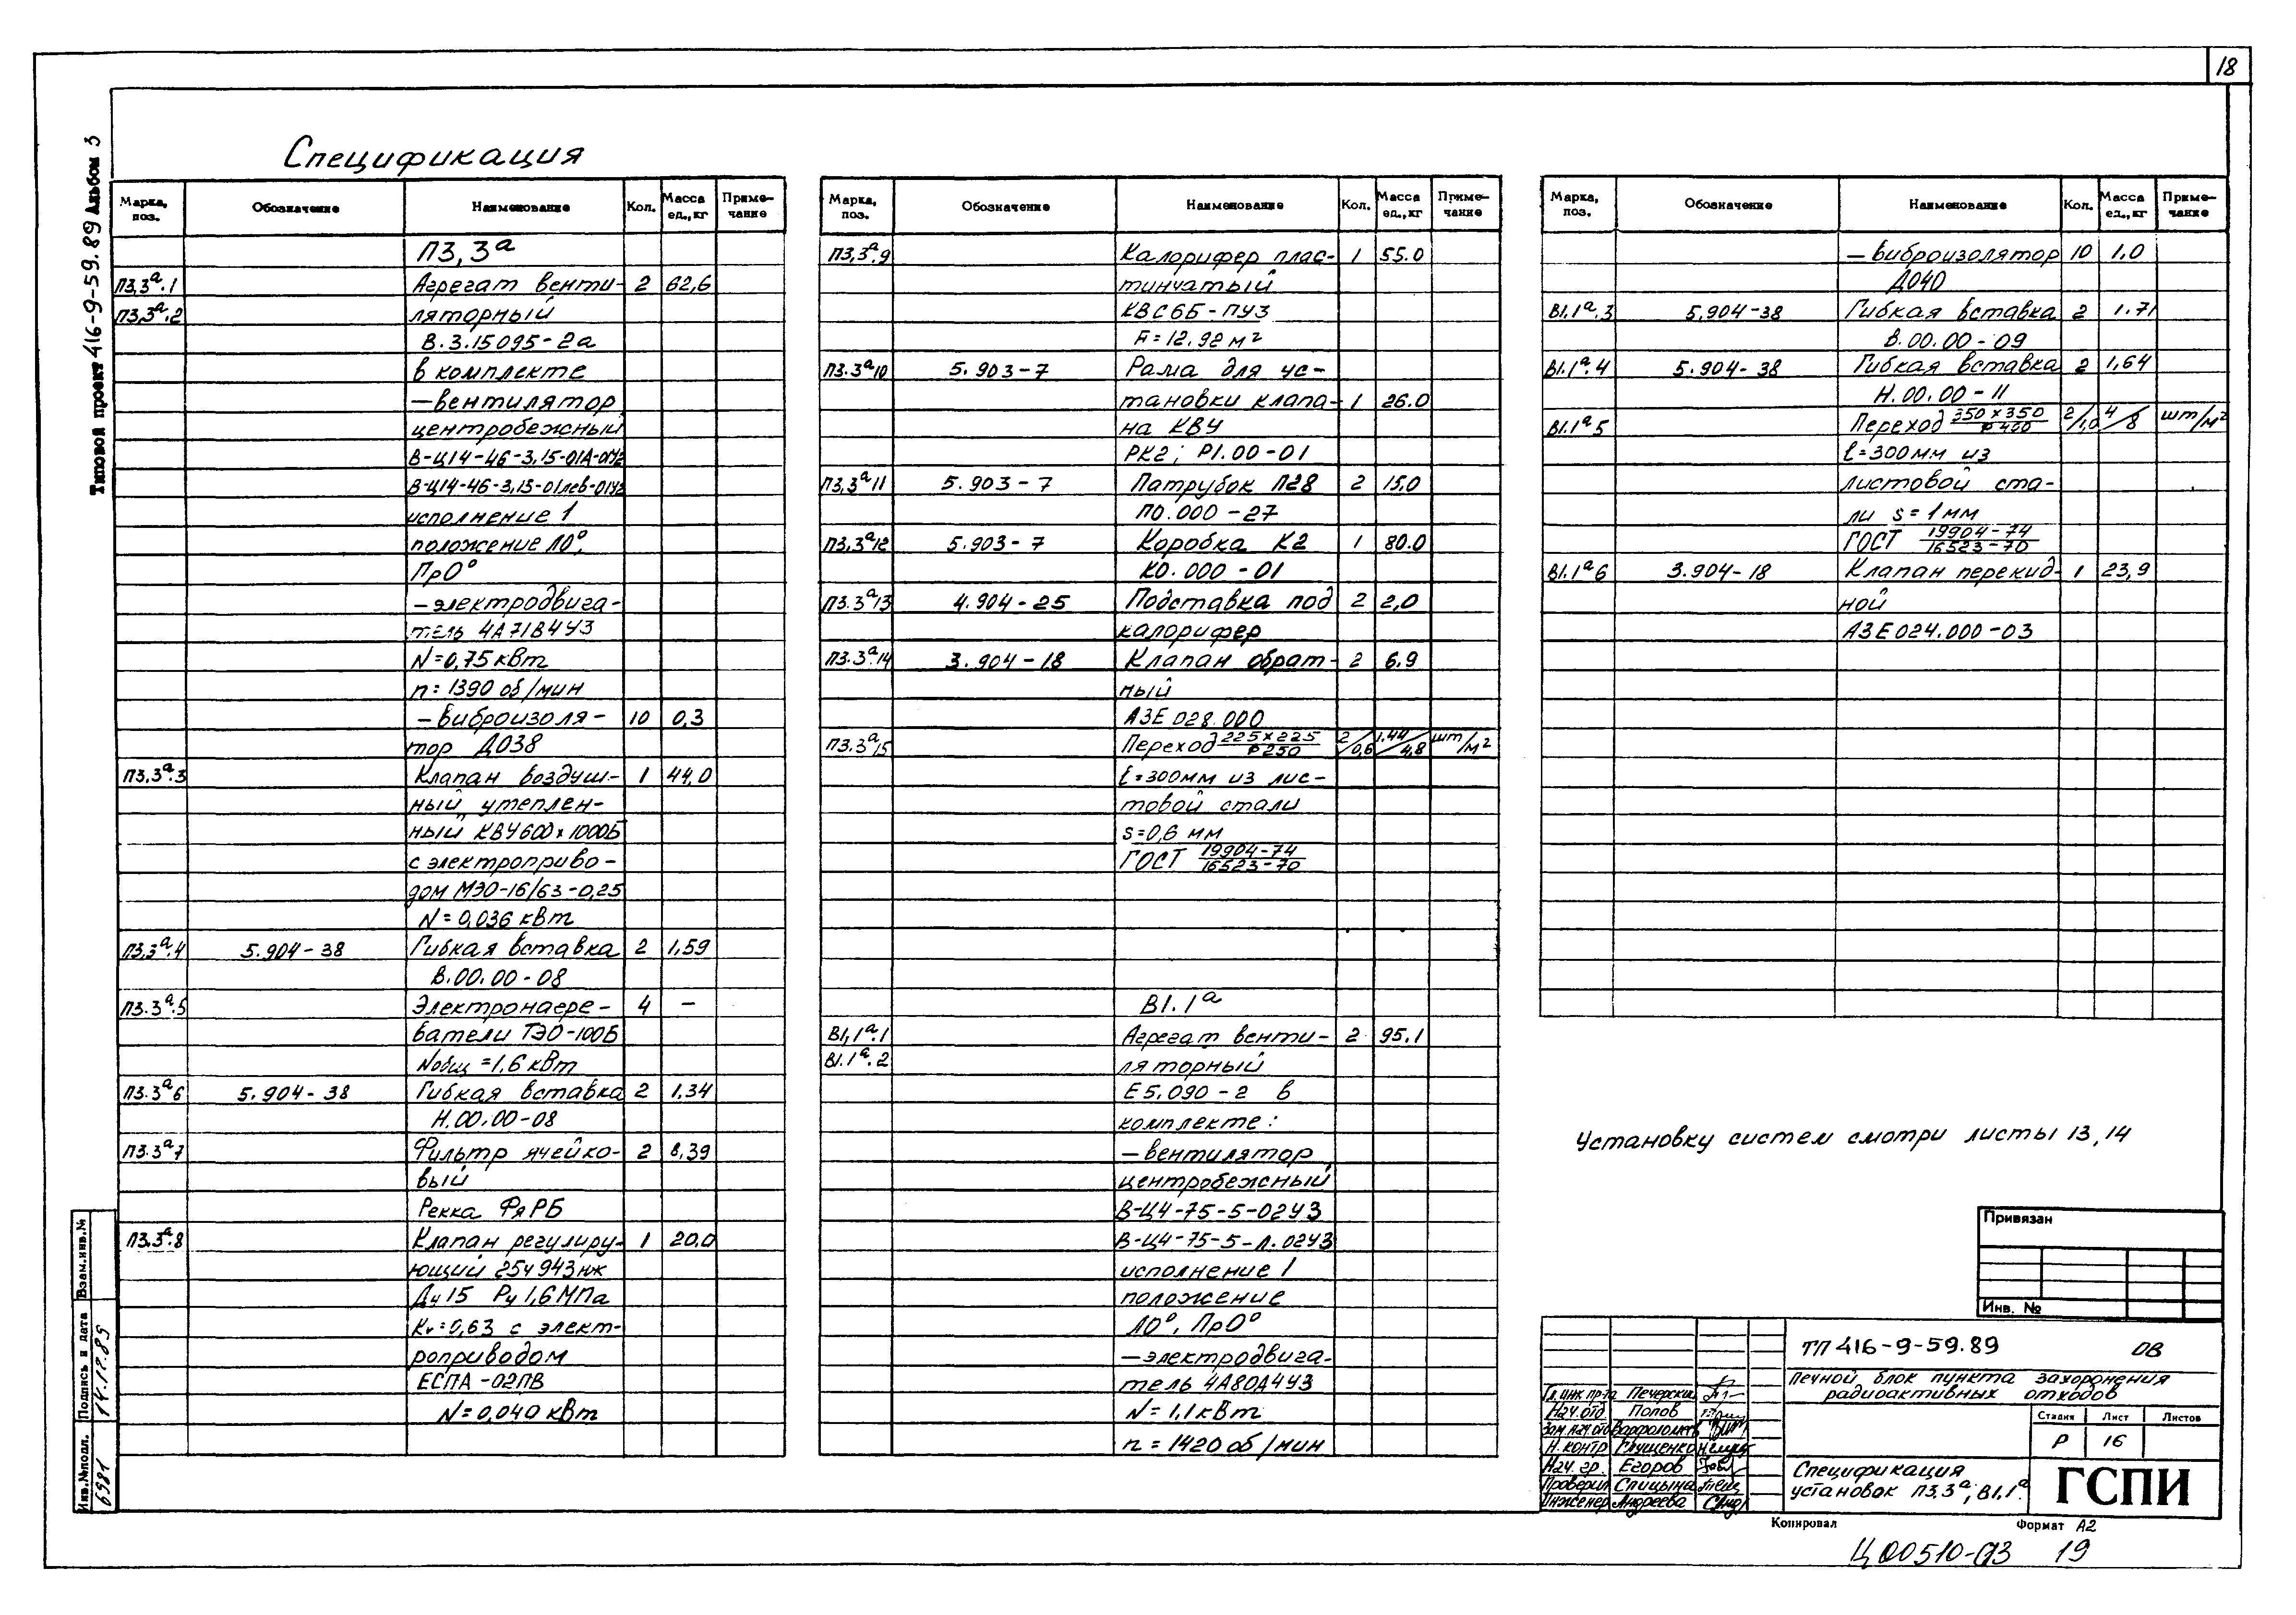 18
Типовой проект 416-9-59.89 Альбом 3
Спецификация
Марка, поз. Обозначение Наименование Кол. Масса ед., кг Приме- чание
П3,3а
П3,3а.1 Агрегат венти- 2 62,6
П3,3а.2 ляторный
В.3.15095-2а
в комплекте
—вентилятор
центробежный
В-Ц14-46-3,15-01А-01У2
В-Ц14-46-3,15-01лев-01У2
исполнение 1
положение Л0°,
Пр0°
—электродвига-
тель 4А71В4У3
N=0,75 кВт
n=1390 об/мин
—виброизоля- 10 0,3
тор Д038
П3,3а.3 Клапан воздуш- 1 44,0
ный утеплен-
ный КВУ600х1000Б
с электроприво-
дом МЭО-16/63-0,25
N=0,036 кВт
П3,3а.4 5.904-38 Гибкая вставка 2 1,59
В.00.00-08
П3.3а.5 Электронагре- 4 —
ватели ТЭО-100Б
Nобщ=1,6 кВт
П3.3а6 5.904-38 Гибкая вставка 2 1,34
Н.00.00-08
П3.3а7 Фильтр ячейко- 2 8,39
вый
Рекка ФяРБ
П3.3а.8 Клапан регулиру- 1 20,0
ющий 25ч943нж
Ду15 Ру1,6МПа
Кv=0,63 с элект-
роприводом
ЕСПА-02ПВ
N=0,040 кВт
Марка, поз. Обозначение Наименование Кол. Масса ед., кг Приме- чание
П3,3а.9 Калорифер плас- 1 55.0
тинчатый
КВС6Б-ПУ3
F=12.92 м²
П3.3а10 5.903-7 Рама для ус-
тановки клапа- 1 26.0
на КВУ
РК2; Р1.00-01
П3,3а11 5.903-7 Патрубок П28 2 15,0
П0.000-27
П3,3а12 5.903-7 Коробка К2 1 80.0
К0.000-01
П3.3а13 4.904-25 Подставка под 2 2,0
калорифер
П3.3а14 3.904-18 Клапан обрат- 2 6.9
ный
АЗЕ028.000
П3.3а15 Переход 225х225/Ф250 2/0,6 1.44/4,8 шт/м²
ℓ=300мм из лис-
товой стали
s=0,6 мм
ГОСТ 19904-74/16523-70
В1.1а
В1,1а.1 Агрегат венти- 2 95.1
В1.1а.2 ляторный
Е5.090-2 в
комплекте:
—вентилятор
центробежный
В-Ц4-75-5-02У3
В-Ц4-75-5-Л.02У3
исполнение 1
положение
Л0°, Пр0°
—электродвига-
тель 4А80А4У3
N=1,1 кВт
n=1420 об/мин
Марка, поз. Обозначение Наименование Кол. Масса ед., кг Приме- чание
—виброизолятор 10 1,0
Д040
В1.1а.3 5.904-38 Гибкая вставка 2 1.71
В.00.00-09
В1.1а.4 5.904-38 Гибкая вставка 2 1,64
Н.00.00-11
В1.1а5 Переход 350х350/Ф400 2/1,0 4/8 шт/м²
ℓ=300мм из
листовой ста-
ли s=1мм
ГОСТ 19904-74/16523-70
В1.1а6 3.904-18 Клапан перекид- 1 23,9
ной
АЗЕ024.000-03
Установку систем смотри листы 13,14
Привязан
Инв. №
ТП 416-9-59.89 ОВ
Печной блок пункта захоронения
радиоактивных отходов
Гл.инж.пр-та Печерский
Нач.отд Попов
Зам.нач.отд
Н.контр
Нач.гр. Егоров
Проверил Спицына
Инженер Андреева
Стадия Лист Листов
Р 16
Спецификация
установок П3,3а; В1,1а.
ГСПИ
Копировал Формат А2
Ц00510-03 19
Взам.инв.№
Подпись и дата
Инв.№подл. 6981